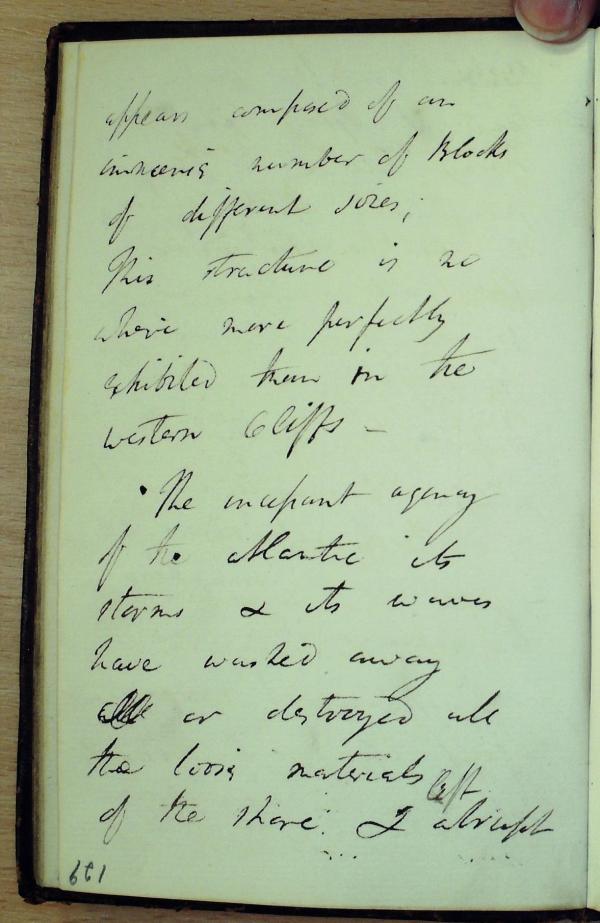 appears composed of an
immense number of Blocks
of different sizes;
This structure is no
where more perfectly
exhibited than in the
western Cliffs –
The incessant agency
of the Atlantic its
storms & its waves
have washed away
or destroyed all
the loose materials
left
of the shore. & abrupt